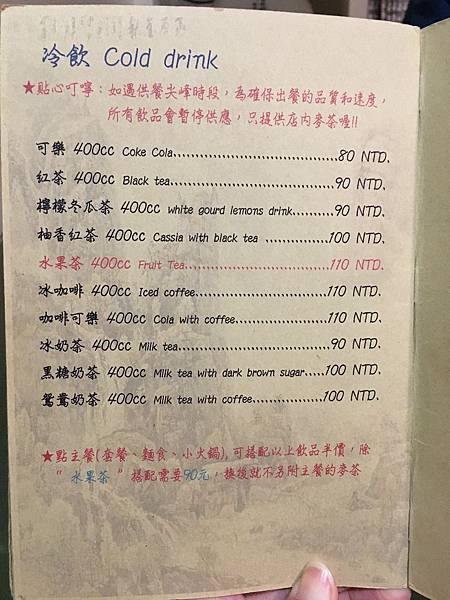 冷飲 Cold drink
★貼心叮嚀：如遇供餐尖峰時段，為確保出餐的品質和速度，
所有飲品會暫停供應，只提供店內麥茶喔!!
可樂 400cc Coke Cola..............................80 NTD.
紅茶 400cc Black tea..............................90 NTD.
檸檬冬瓜茶 400cc white gourd lemons drink.........90 NTD.
柚香紅茶 400cc Cassia with black tea ............100 NTD.
水果茶 400cc Fruit Tea..........................110 NTD.
冰咖啡 400cc Iced coffee........................110 NTD.
咖啡可樂 400cc Cola with coffee.................110 NTD.
冰奶茶 400cc Milk tea............................90 NTD.
黑糖奶茶 400cc Milk tea with dark brown sugar.....100 NTD.
鴛鴦奶茶 400cc Milk tea with coffee..............100 NTD.
★點主餐(套餐、麵食、小火鍋)，可搭配以上飲品半價，除
“ 水果茶 ” 搭配需要90元，換後就不另附主餐的麥茶